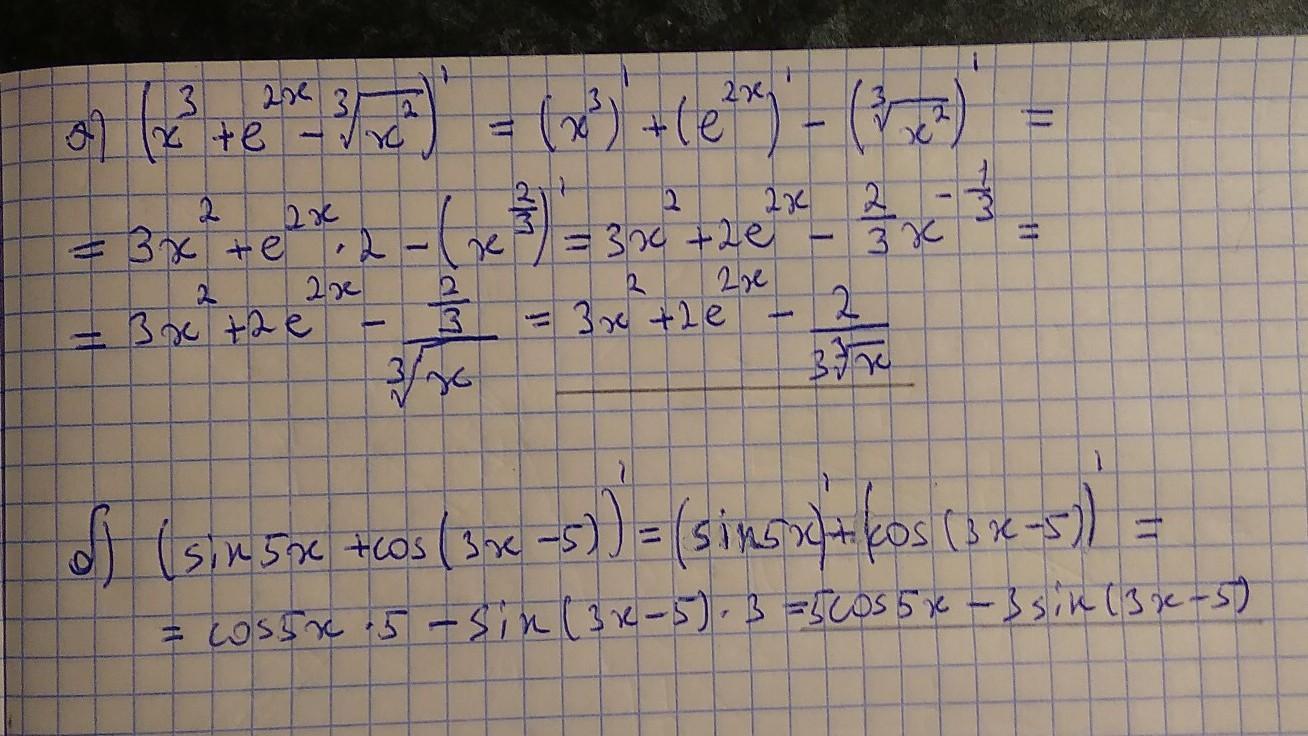 а) (x³ + e²ˣ - ∛x²)' = (x³)' + (e²ˣ)' - (∛x²)' =
= 3x² + e²ˣ · 2 - (x^(2/3))' = 3x² + 2e²ˣ - 2/3 x^(-1/3) =
= 3x² + 2e²ˣ - (2/3)/∛x = 3x² + 2e²ˣ - 2/(3∛x)
б) (sin5x + cos(3x-5))' = (sin5x)' + (cos(3x-5))' =
= cos5x · 5 - sin(3x-5) · 3 = 5cos5x - 3sin(3x-5)